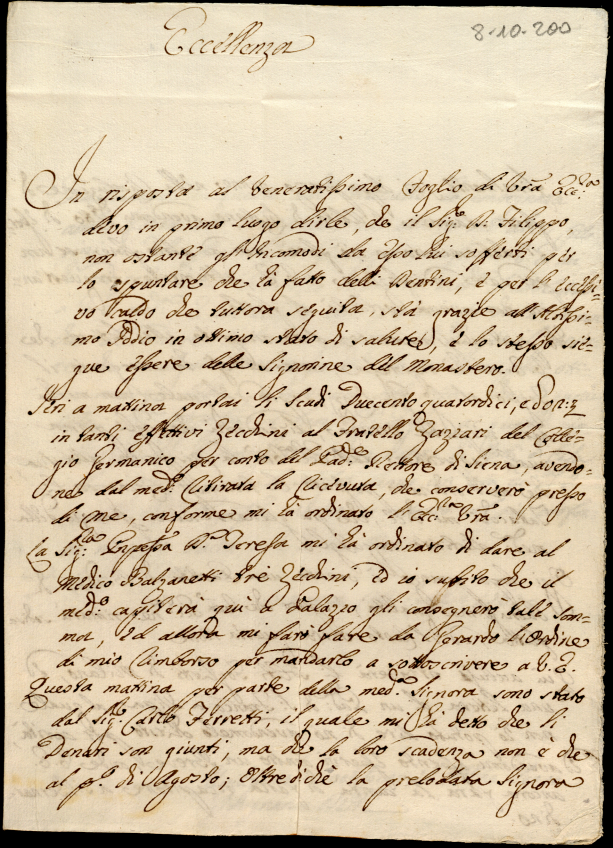 8-10-200
Eccellenza
In risposta al Veneratissimo Foglio di Vrã Eccza:
devo in primo luogo dirle, che il Sige: Dn. Filippo,
non ostante gl'Incomodi da Esso lui sofferti per
lo spuntare che hà fatto delli Dentini, è per l'Eccessi-
vo Caldo che tuttora seguita, stà grazie all'Altissi-
mo Iddio in ottimo stato di salute, è lo stesso sie-
gue Essere delle Signorine del Monastero.
Ieri a mattina portai li Scudi Duecento quatordici, e
in tanti effettivi Zecchini al Fratello Zazzari del Colle-
gio Germanico per conto del Pade: Rettore di Siena, avendo-
ne dal medo: ritirata la ricevuta, che conserverò presso
di me, conforme mi hà ordinato l'Eccza: Vrã.
La Siga: Pnpessa Da. Teressa mi hà ordinato di dare al
Medico Balzanetti trè Zecchini, Ed io subito che il
medo: capiterà quì a Palazzo gli consegnerò tall' som-
ma, ed allora mi farò fare da Gerardo l'Ordine
di mio rimborso per mandarlo a sottoscrivere a V. E.
Questa mattina per parte della meda: Signora sono stato
dal Sige: Carlo Ferretti, il quale mi hà detto che li
Denari son giunti, ma che la loro scadenza non è che
al po. di Agosto; Oltre di chè la prelodata Signora